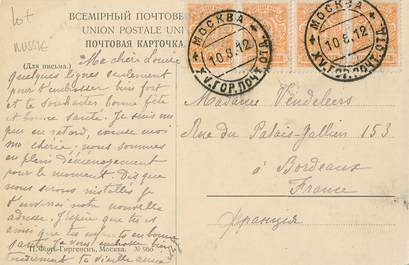 lot
RUSSIE
ВСЕМІРНЫЙ ПОЧТОВЫ
UNION POSTALE UNI
ПОЧТОВАЯ КАРТОЧКА.
(Для письма.)
МОСКВА
10.8.12
XV.ГОР.ПОЧТ.ОТД.
МОСКВА
10.8.12
XV.ГОР.ПОЧТ.ОТД.
Ma chère Louise
quelques lignes seulement
pour t'embrasser bien
fort et te souhaiter bonne fête
et bonne santé. Je suis un
peu en retard, comme moi
ma chérie nous sommes
en plein déménagement
pour le moment. Dès que
nous serons installés je
t'enverrai notre nouvelle
adresse. J'espère que tu es
ainsi que tes enfants en bonne
santé. Je vous embrasse bien
tendrement ta vieille amie
П. Фонъ-Гиргенсъ, Москва. № 960
Madame Vendeleers
Rue du Palais-Gallien 153
à Bordeaux
France
Франція